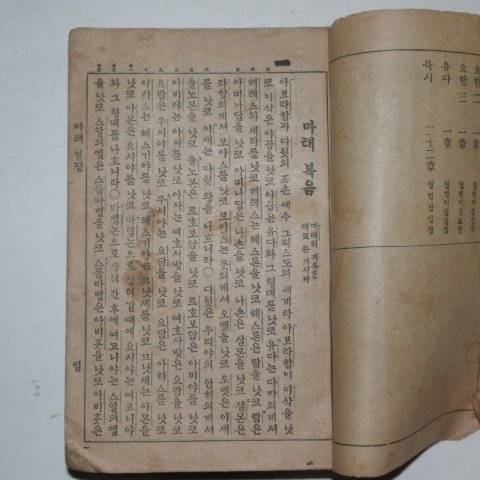 요한二 一章
요한三 一章
유다 一章
묵시 二十二章
마태 복음
마태의 긔록한
대로 쓴 거시라
아브라함과 다윗의 자손 예수 그리스도의 세계라 아브라함이 이삭을 낫
코 이삭은 야곱을 낫코 야곱은 유다와 그 형뎨를 낫코 유다는 다마의게셔
베레스와 세라를 낫코 베레스는 헤스론을 낫코 헤스론은 람을 낫코 람은
아미나답을 낫코 아미나답은 나손을 낫코 나손은 살몬을 낫코 살몬은
라합의게셔 보아스를 낫코 보아스는 룻의게셔 오벳을 낫코 오벳은 이새
를 낫코 이새는 다윗 왕을 나흐니라 ○ 다윗은 우리야의 안해의게셔
솔노몬을 낫코 솔노몬은 르호보암을 낫코 르호보암은 아비야를 낫코
아비야는 아사를 낫코 아사는 여호사밧을 낫코 여호사밧은 요람을 낫코
요람은 우시야를 낫코 우시야는 요담을 낫코 요담은 아하스를 낫코
아하스는 헤스기야를 낫코 헤스기야는 므낫세를 낫코 므낫세는 아몬을
낫코 아몬은 요시야를 낫코 바벨논으로 잡혀갈 때에 요시야는 여고니야
와 그 형뎨를 나흐니라 ○ 바벨논으로 잡혀간 후에 여고니야는 스알듸엘
을 낫코 스알듸엘은 스룹바벨을 낫코 스룹바벨은 아비훗을 낫코 아비훗은
마태 일쟝
일